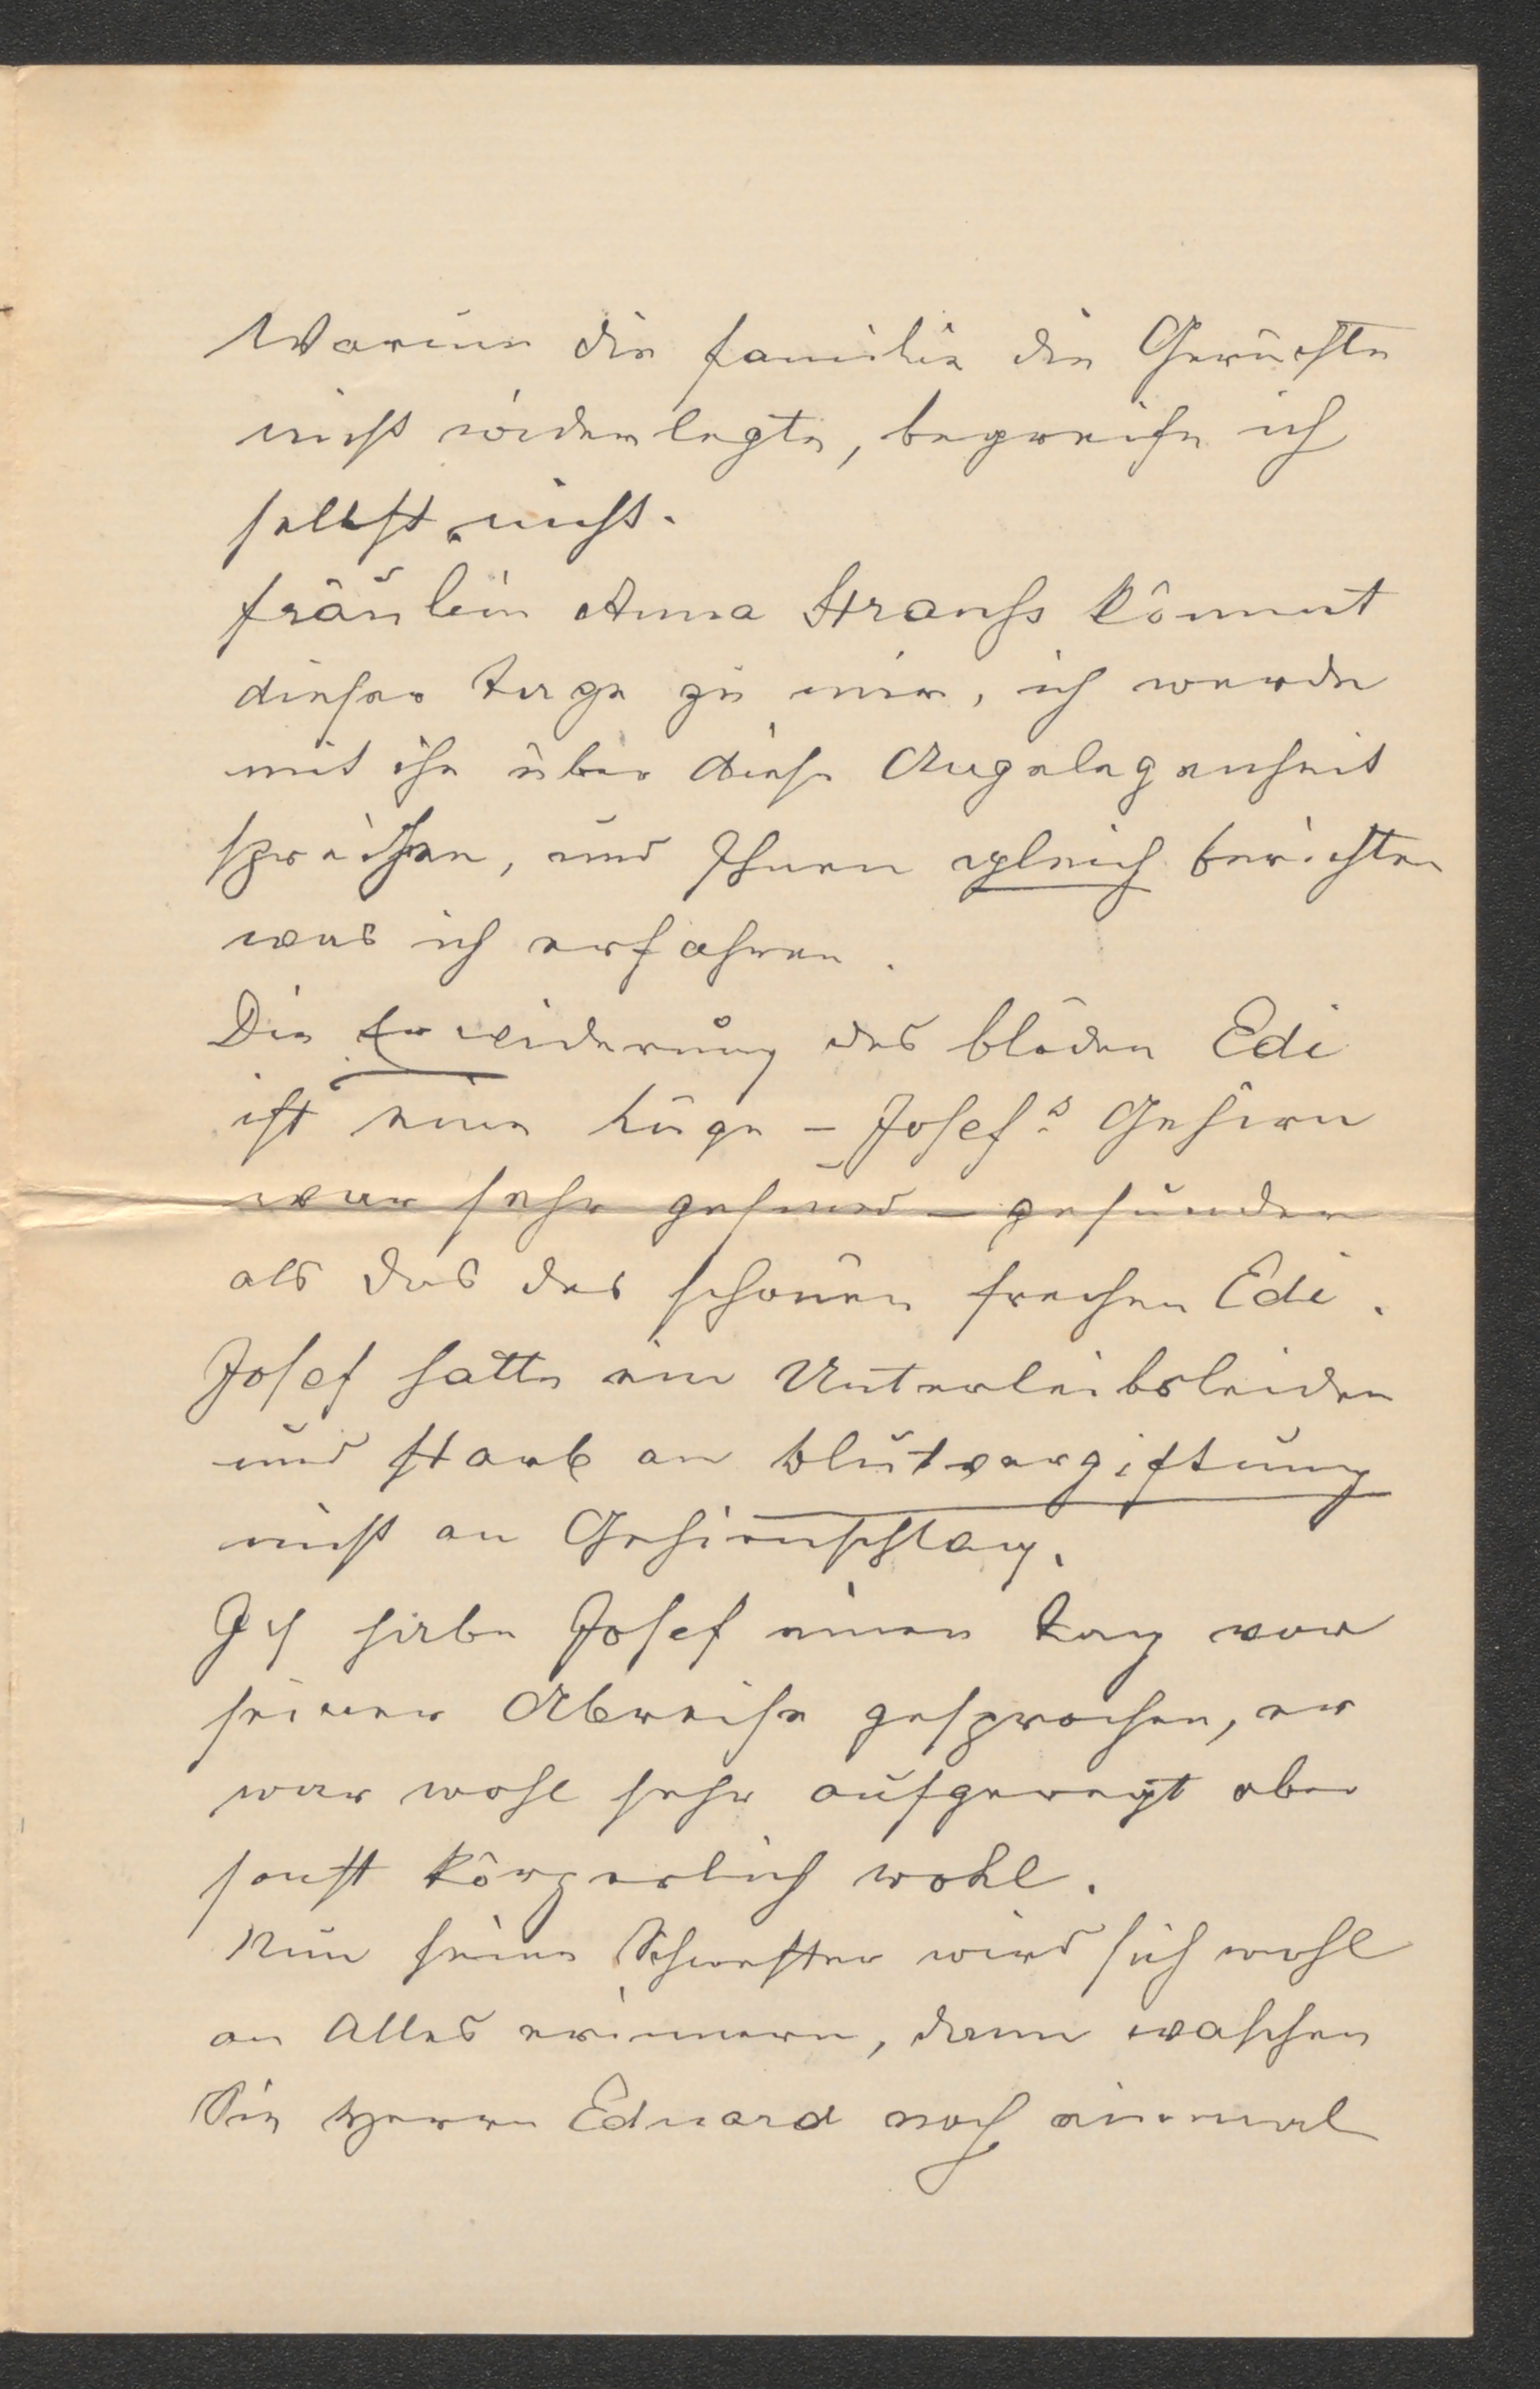 Warum die Familie die Gerüchte
nicht wiederlegte, begreife ich
selbst nicht.
Fräulein Anna Strauss kommt
dieser Tage zu mir, ich werde
mit ihr über diese Angelegenheit
sprechen, und Ihnen gleich berichten
was ich erfahren.
Die Erwiderung des blöden Edi
ist eine Lüge – Josef's Gehirn
war sehr gesund – gesunder
als das des schönen frechen Edi.
Josef hatte ein Unterleibsleiden
und starb an Blutvergiftung
nicht an Gehirnschlag.
Ich habe Josef einen Tag vor
seiner Abreise gesprochen, er
war wohl sehr aufgeregt aber
sonst körperlich wohl.
Nun seine Schwester wird sich wohl
an Alles erinnern, dann waschen
Sie Herrn Eduard noch einmal